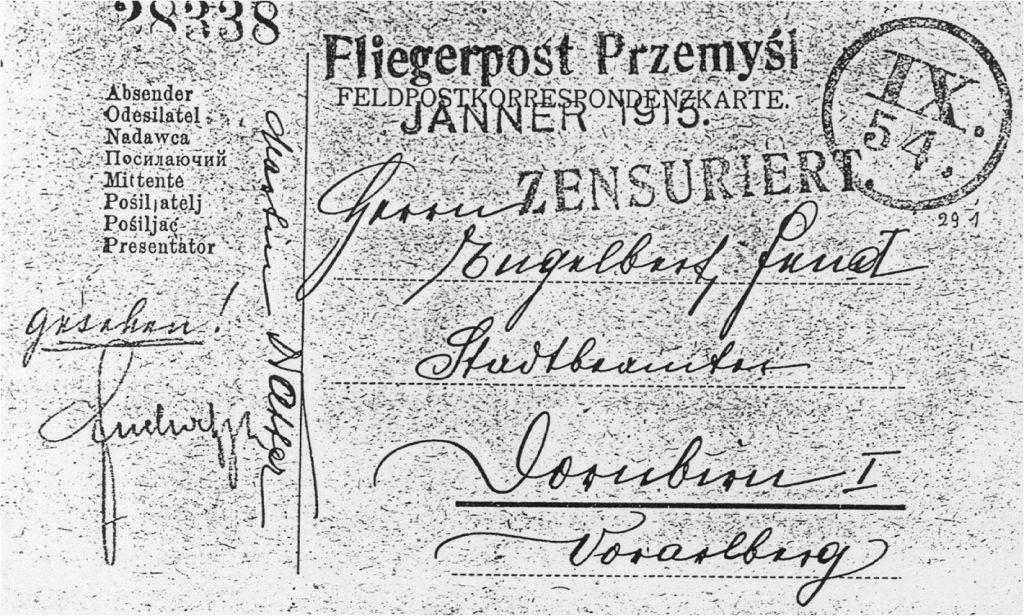 28338
Absender
Odesílatel
Nadawca
Посилаючий
Mittente
Pošiljatelj
Pošiljać
Presentator
gesehen!
Martin
Fliegerpost Przemyśl
FELDPOSTKORRESPONDENZKARTE.
JÄNNER 1915.
ZENSURIERT.
IX.
54.
29 1
Herrn
Engelbert
Stadtbeamter
Dornbirn I
Vorarlberg